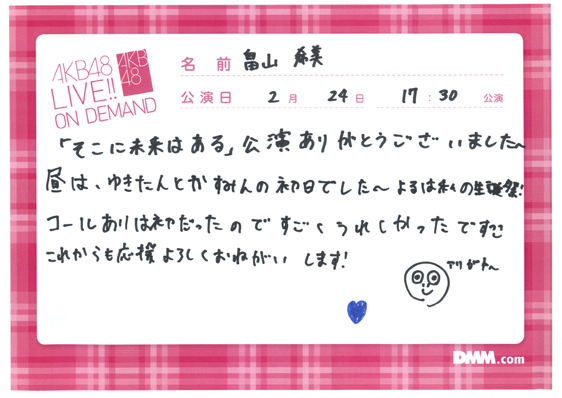 AKB48
LIVE!!
ON DEMAND
AKB
48
名 前 畠山 希美
公演日 2月 24日 17:30 公演
「そこに未来はある」公演ありがとうございました〜
昼は、ゆきたんとかすみんの初日でした〜 よるは私の生誕祭!
コールありは初だったのですごくうれしかったですっ
これからも応援よろしくおねがいします!
アリガトー
DMM.com